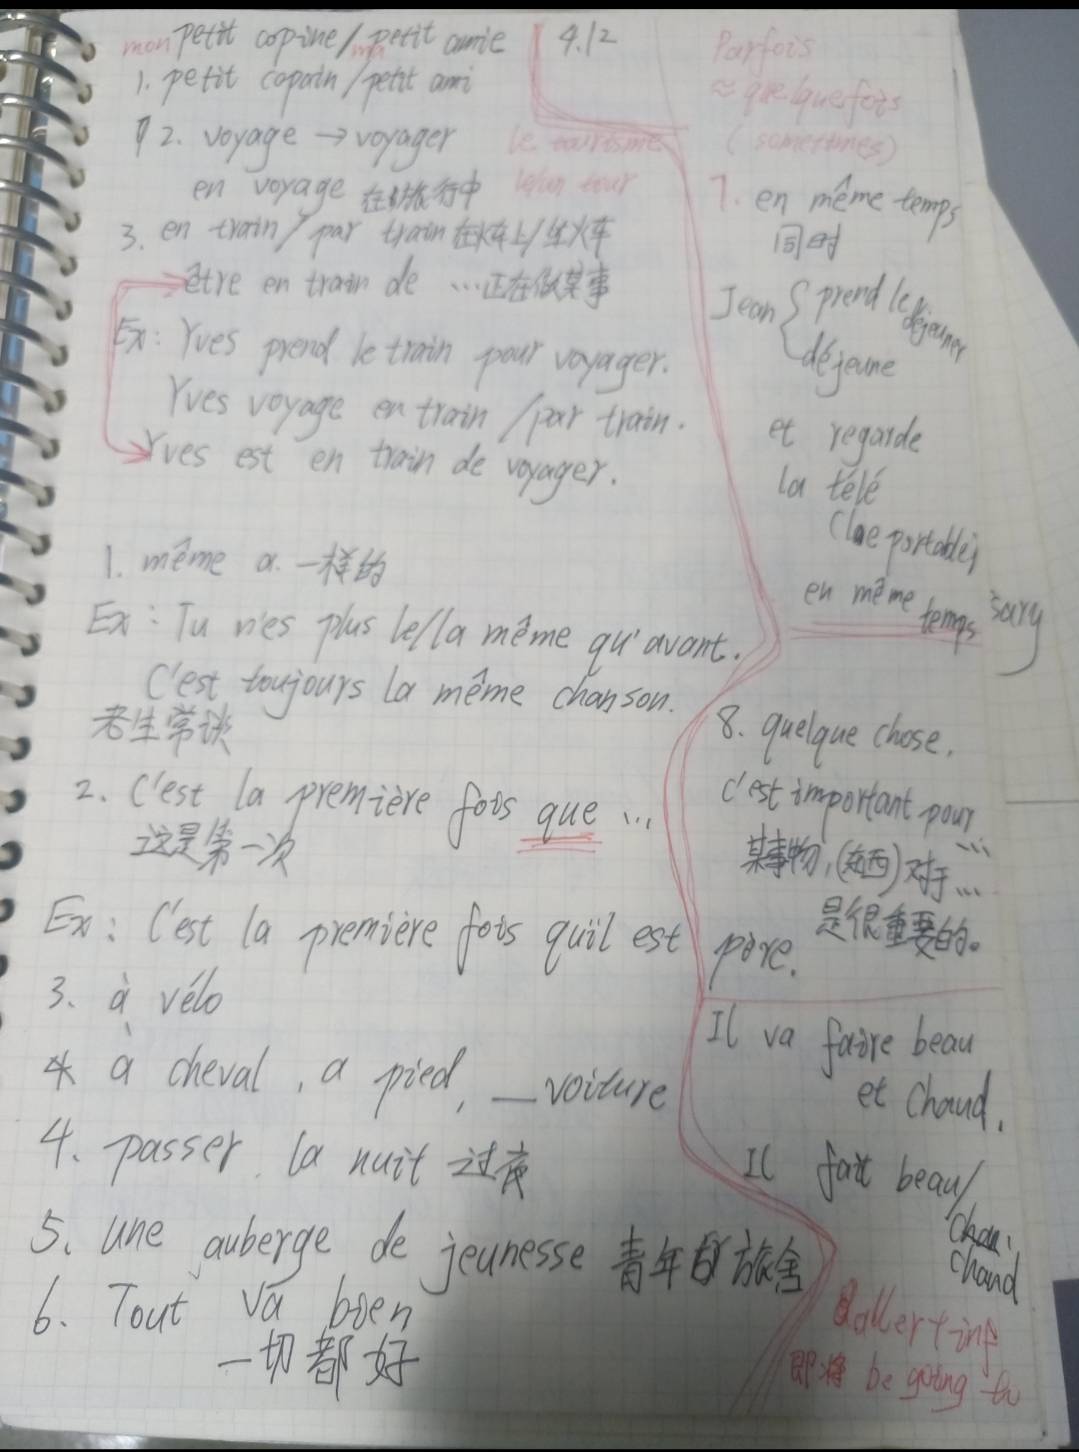 mon petit copine/ma petit amie
4.12
1. petit copain/petit ami
2. voyage → voyager
le tourisme
en voyage 在旅行中
le/un tour
3. en train/par train 在火车上/坐火车
être en train de …正在做某事
Ex: Yves prend le train pour voyager.
Yves voyage en train/par train.
Yves est en train de voyager.
1. même a. 一样的
Ex: Tu n'es plus le/la même qu'avant.
C'est toujours la même chanson.
老生常谈
2. C'est la première fois que ...
这是第一次
Ex: C'est la première fois qu'il est père.
3. à vélo
* à cheval, a pied, __ voiture
4. passer la nuit 过夜
5. une auberge de jeunesse 青年旅舍
6. Tout va bien
一切都好
Parfois
≈ quelquefois
(sometimes)
7. en même temps
同时
Jean { prend le déjeuner
déjeune
et regarde
la télé
en même temps
sary
8. quelque chose,
c'est important pour ...
某事物,(东西)对于...
是很重要的。
Il va faire beau
et chaud.
Il fait beau/
chaud
aller + inf
即将 be going to